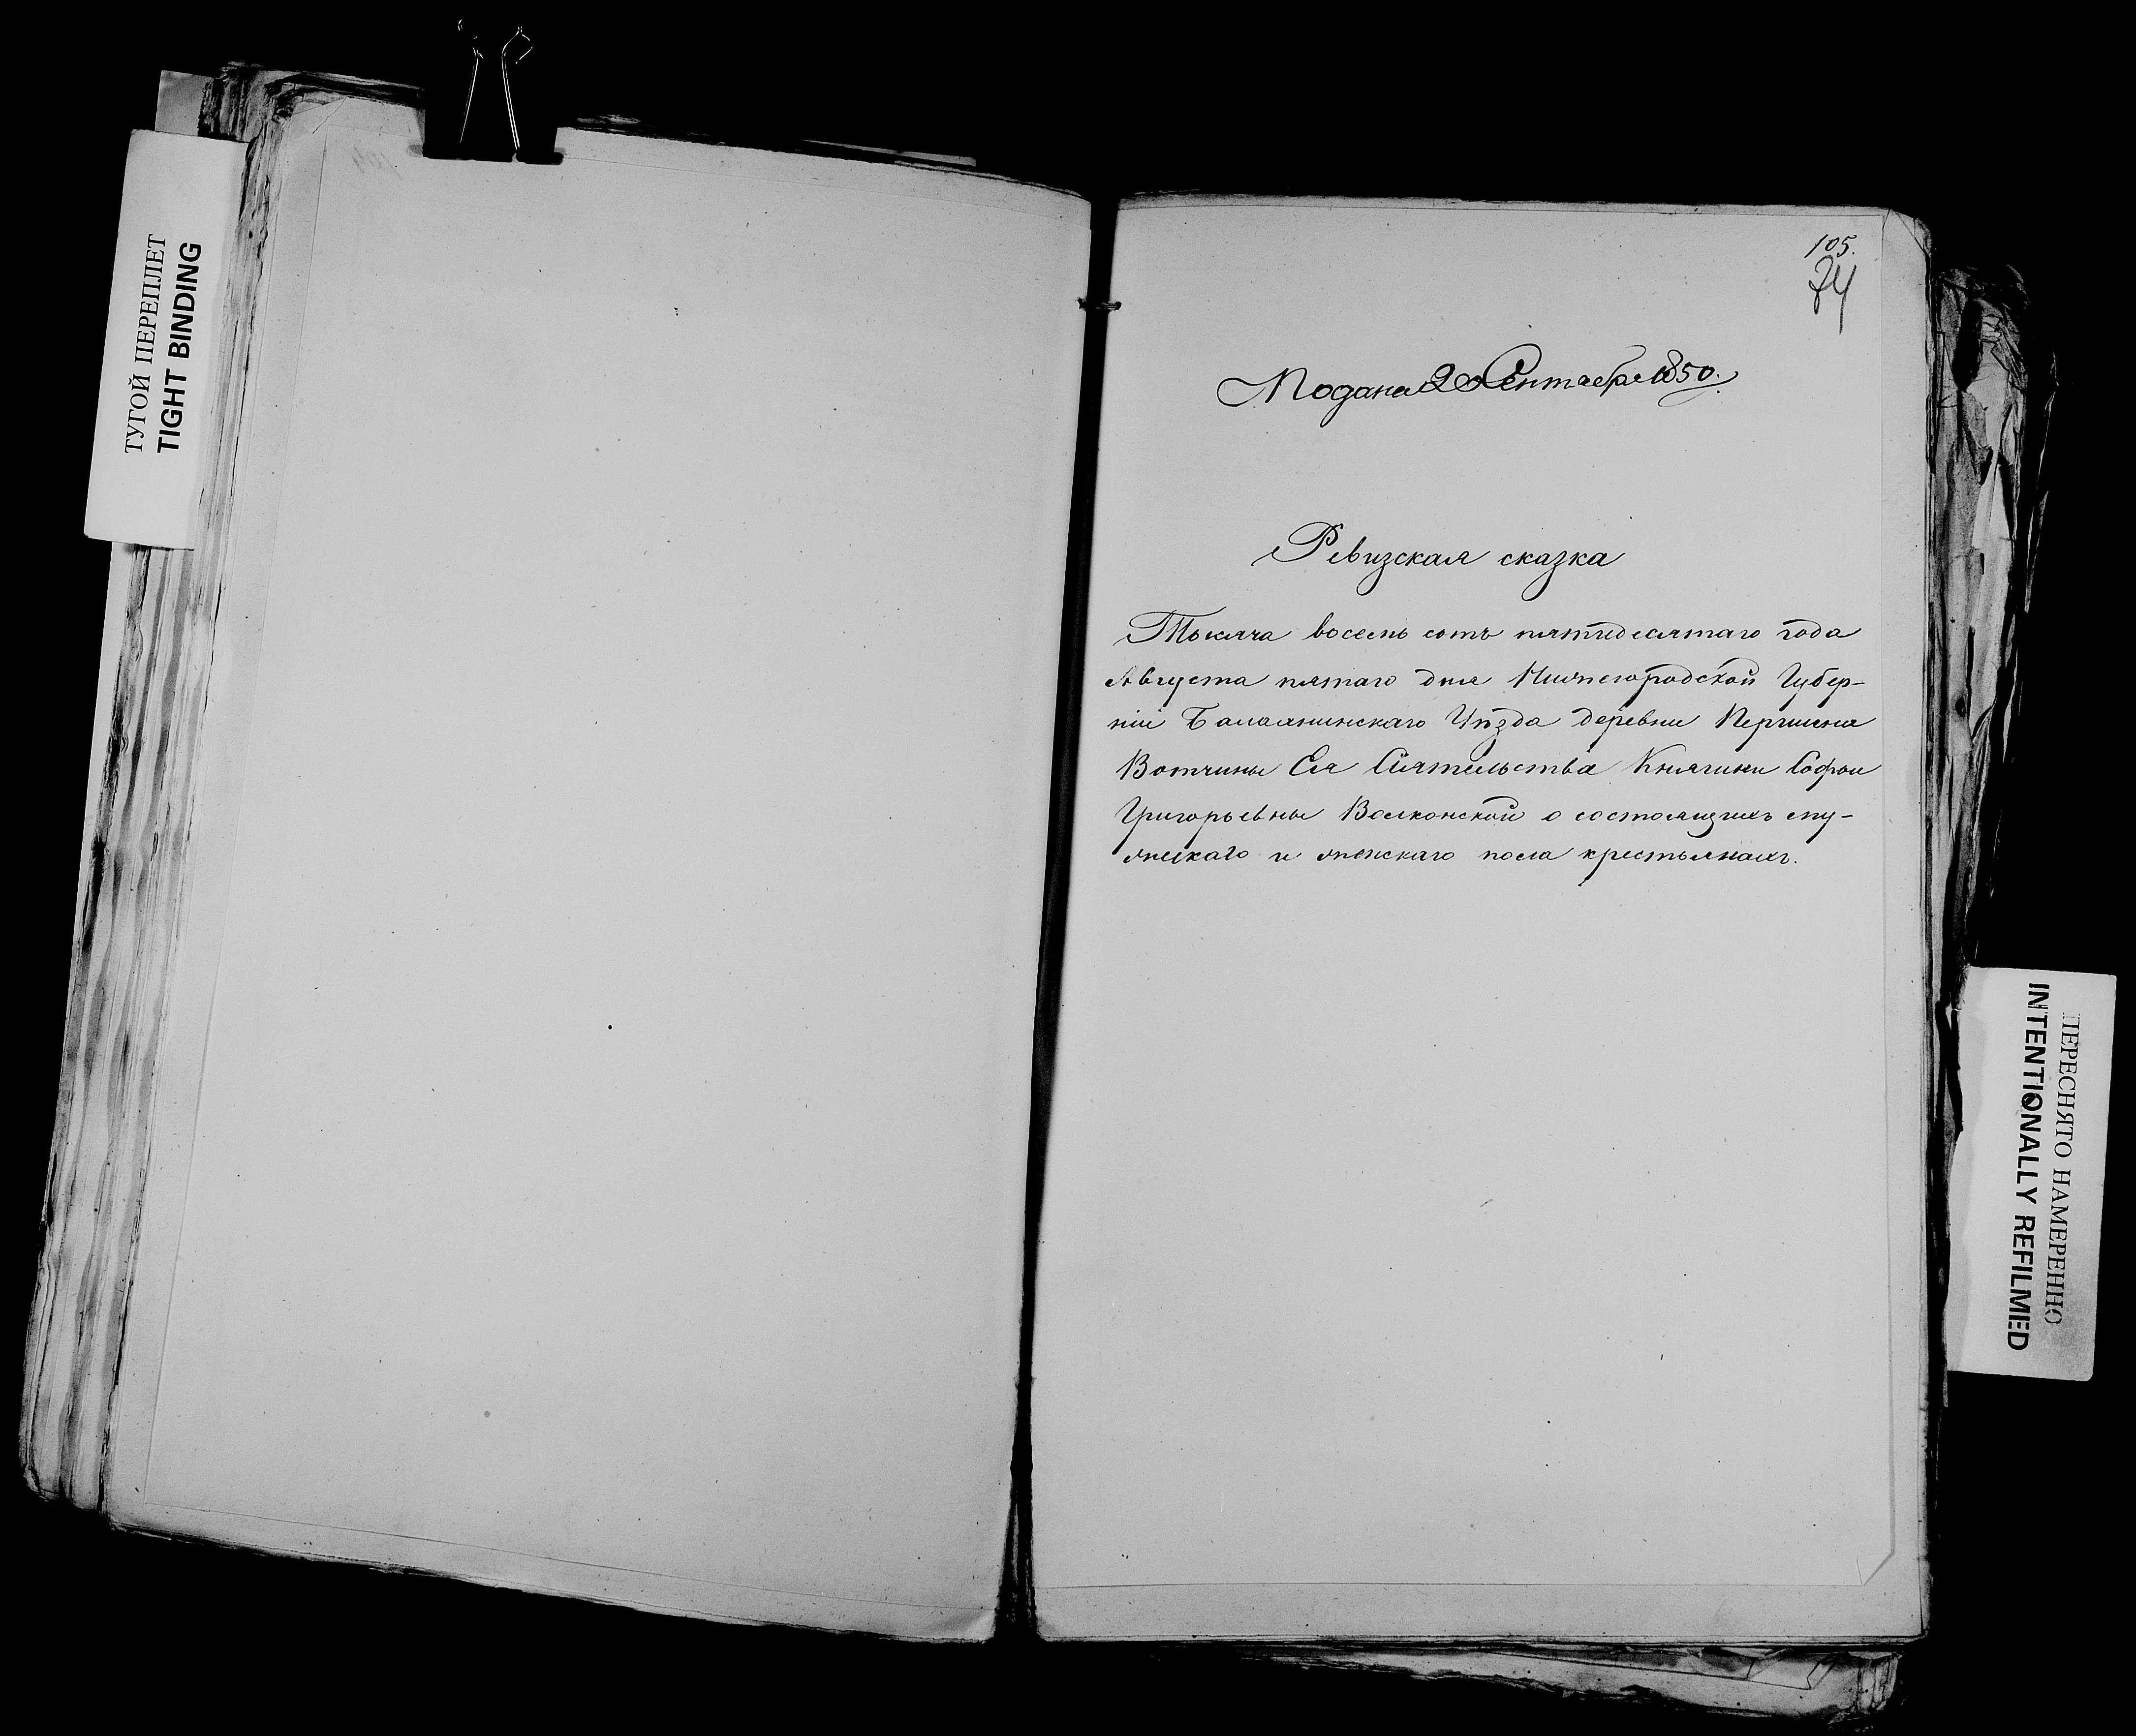 ТУГОЙ ПЕРЕПЛЕТ
TIGHT BINDING
105.
74
Подана 20 Сентября 1850.
Ревизская сказка
Тысяча восемь сотъ пятидесятаго года
Августа пятаго дня Нижегородской Губер-
ніи Балахнинскаго Уѣзда деревни Першина
Вотчины Ея Сіятельства Княгини Софьи
Григорьевны Волконской о состоящихъ му-
жескаго и женскаго пола крестьянахъ.
ПЕРЕСНЯТО НАМЕРЕННО
INTENTIONALLY REFILMED